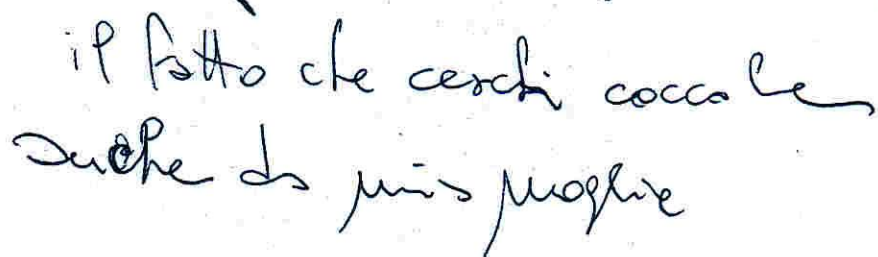 il fatto che cerchi coccole
anche da mia moglie